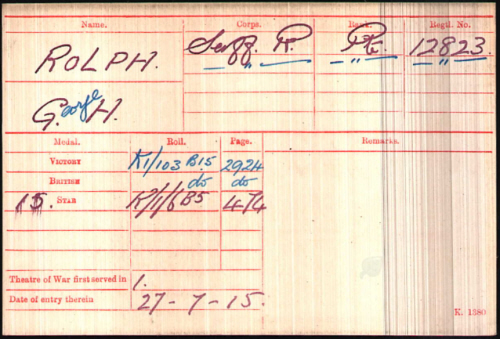 Name. Corps. Rank. Regtl. No.
ROLPH. Suff. R. Pte. 12823.
" " "
George H.
Medal. Roll. Page. Remarks.
VICTORY K1/103 B15 2924
BRITISH do do
15 STAR K2/1/6 B5 474
Theatre of War first served in 1.
Date of entry therein 27-7-15.
K. 1380